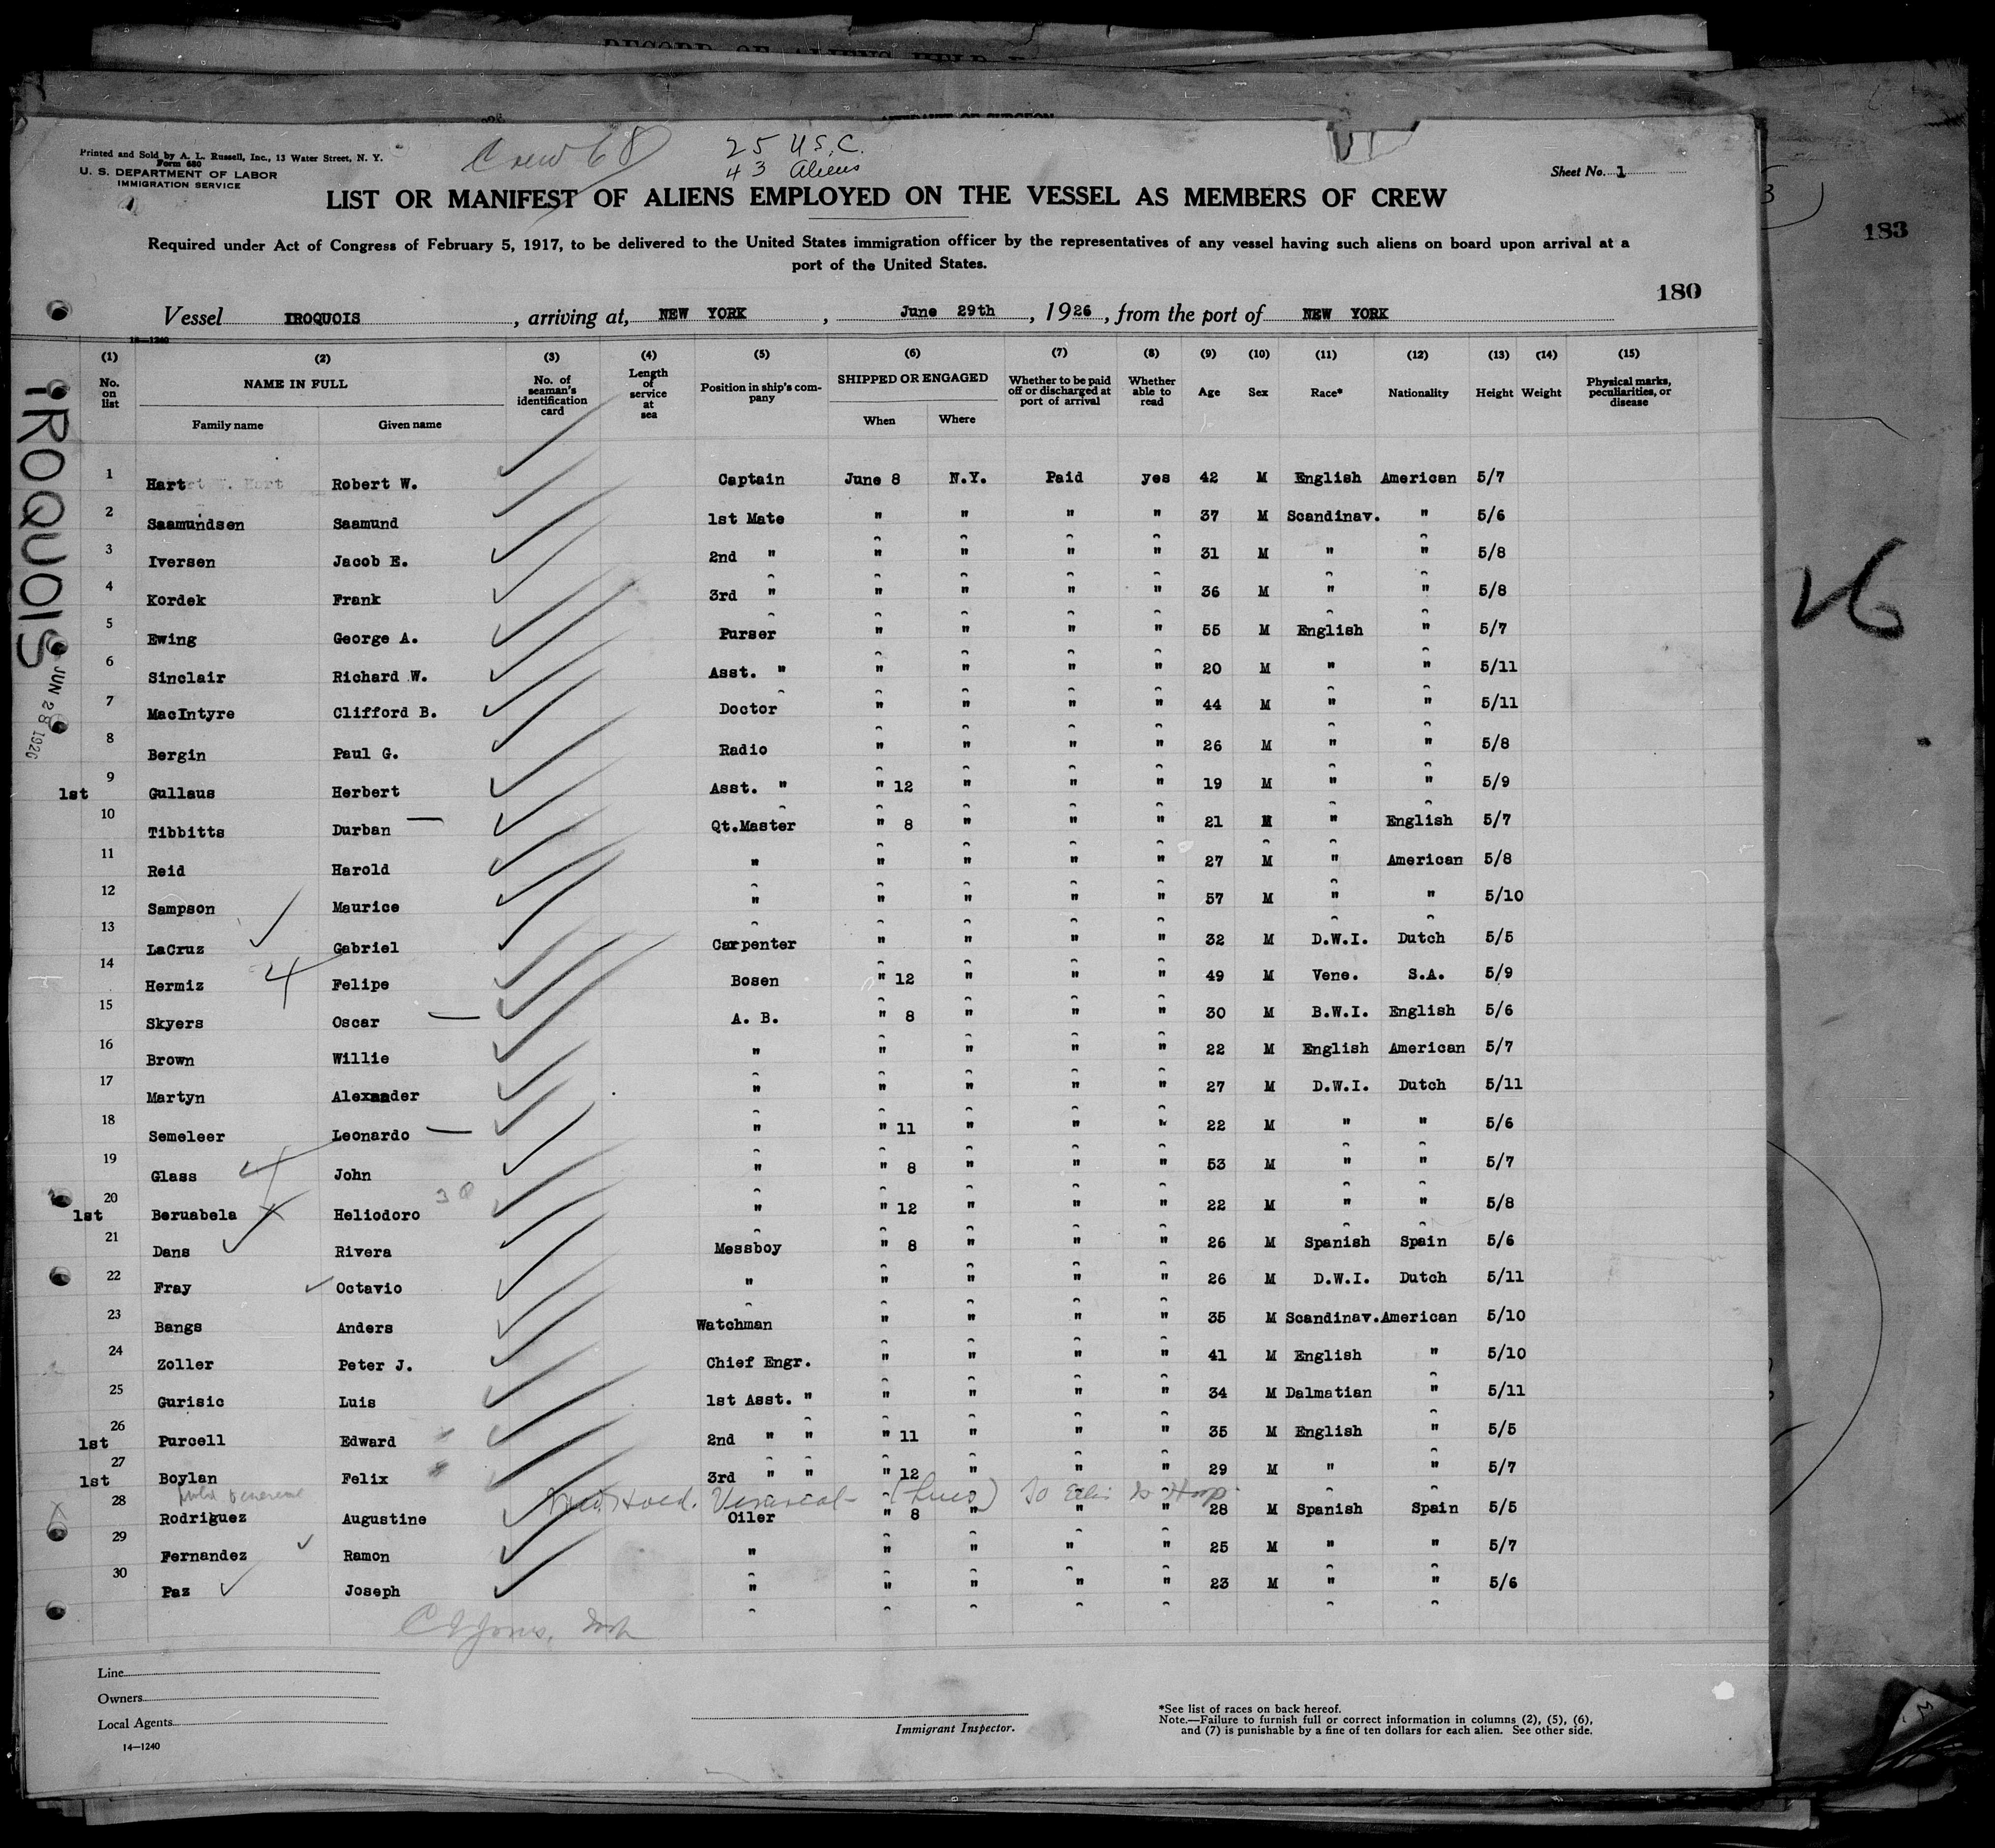 RECORD OF ALIENS HELD
AFFIDAVIT OF SURGEON
Printed and Sold by A. L. Russell, Inc., 13 Water Street, N. Y.
Form 680
U. S. DEPARTMENT OF LABOR
IMMIGRATION SERVICE
Crew 68
25 U.S.C.
43 Aliens
Sheet No. 1
LIST OR MANIFEST OF ALIENS EMPLOYED ON THE VESSEL AS MEMBERS OF CREW
Required under Act of Congress of February 5, 1917, to be delivered to the United States immigration officer by the representatives of any vessel having such aliens on board upon arrival at a
port of the United States.
183
180
Vessel IROQUOIS, arriving at, NEW YORK, June 29th, 1926, from the port of NEW YORK
(1) (2) (3) (4) (5) (6) (7) (8) (9) (10) (11) (12) (13) (14) (15)
No. on list NAME IN FULL Family name Given name No. of seaman's identification card Length of service at sea Position in ship's company SHIPPED OR ENGAGED When Where Whether to be paid off or discharged at port of arrival Whether able to read Age Sex Race* Nationality Height Weight Physical marks, peculiarities, or disease
1 Hart Robert W. Captain June 8 N.Y. Paid yes 42 M English American 5/7
2 Saamundsen Saamund 1st Mate " " " " 37 M Scandinav. " 5/6
3 Iversen Jacob E. 2nd " " " " " 31 M " " 5/8
4 Kordek Frank 3rd " " " " " 36 M " " 5/8
5 Ewing George A. Purser " " " " 55 M English " 5/7
6 Sinclair Richard W. Asst. " " " " " 20 M " " 5/11
7 MacIntyre Clifford B. Doctor " " " " 44 M " " 5/11
8 Bergin Paul G. Radio " " " " 26 M " " 5/8
1st 9 Gullaus Herbert Asst. " " 12 " " " 19 M " " 5/9
10 Tibbitts Durban Qt.Master " 8 " " " 21 M " English 5/7
11 Reid Harold " " " " " 27 M " American 5/8
12 Sampson Maurice " " " " " 57 M " " 5/10
13 LaCruz Gabriel Carpenter " " " " 32 M D.W.I. Dutch 5/5
14 Hermiz Felipe Bosen " 12 " " " 49 M Vene. S.A. 5/9
15 Skyers Oscar A. B. " 8 " " " 30 M B.W.I. English 5/6
16 Brown Willie " " " " " 22 M English American 5/7
17 Martyn Alexander " " " " " 27 M D.W.I. Dutch 5/11
18 Semeleer Leonardo " " 11 " " " 22 M " " 5/6
19 Glass John " " 8 " " " 53 M " " 5/7
1st 20 Beruabela Heliodoro " " 12 " " " 22 M " " 5/8
21 Dans Rivera Messboy " 8 " " " 26 M Spanish Spain 5/6
22 Fray Octavio " " " " " 26 M D.W.I. Dutch 5/11
23 Bangs Anders Watchman " " " " 35 M Scandinav. American 5/10
24 Zoller Peter J. Chief Engr. " " " " 41 M English " 5/10
25 Gurisic Luis 1st Asst. " " " " " 34 M Dalmatian " 5/11
1st 26 Purcell Edward 2nd " " " 11 " " " 35 M English " 5/5
1st 27 Boylan Felix 3rd " " " 12 " " " 29 M " " 5/7
28 Rodriguez Augustine Oiler " 8 " " " 28 M Spanish Spain 5/5
29 Fernandez Ramon " " " " " 25 M " " 5/7
30 Paz Joseph " " " " " 23 M " " 5/6
Line
Owners
Local Agents
14—1240
Immigrant Inspector.
*See list of races on back hereof.
Note.—Failure to furnish full or correct information in columns (2), (5), (6),
and (7) is punishable by a fine of ten dollars for each alien. See other side.
IROQUOIS
JUN 28 1926
26